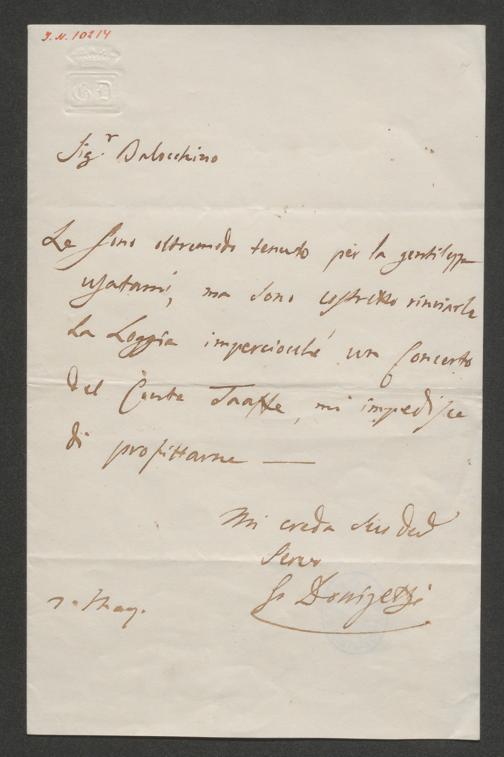 J.N. 10214
GD
Sig.r Balocchino
Le sono oltremodo tenuto per la gentilezza
usatami, ma sono costretto rinviarle
la Loggia imperciocché un Concerto
del Conte Taaffe, mi impedisce
di profittarne —
Mi creda Suo Ded
Servo
G Donizetti
7. Mag.